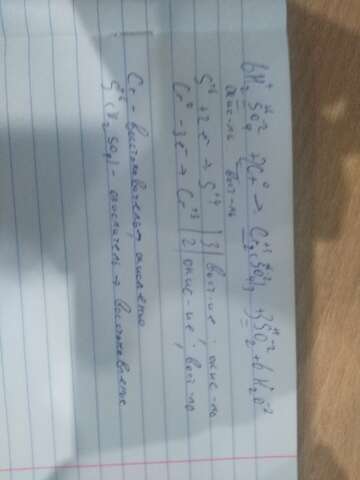 6H₂⁺S⁺⁶O₄⁻² + 2Cr⁰ → Cr₂⁺³(S⁺⁶O₄⁻²)₃ + 3S⁺⁴O₂⁻² + 6H₂⁺O⁻²
окис-ль вост-ль
S⁺⁶ + 2e⁻ → S⁺⁴ | 3 | вост-ие; окис-ль
Cr⁰ - 3e⁻ → Cr⁺³ | 2 | окис-ие; вост-ль
Cr - восстановитель, окисление
S⁺⁶ (H₂SO₄) - окислитель → восстановление